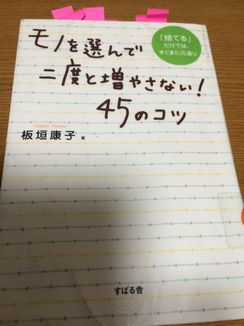 「捨てる」
だけでは、
すぐまた元通り
モノを選んで
二度と増やさない!
45のコツ
板垣康子 著
すばる舎